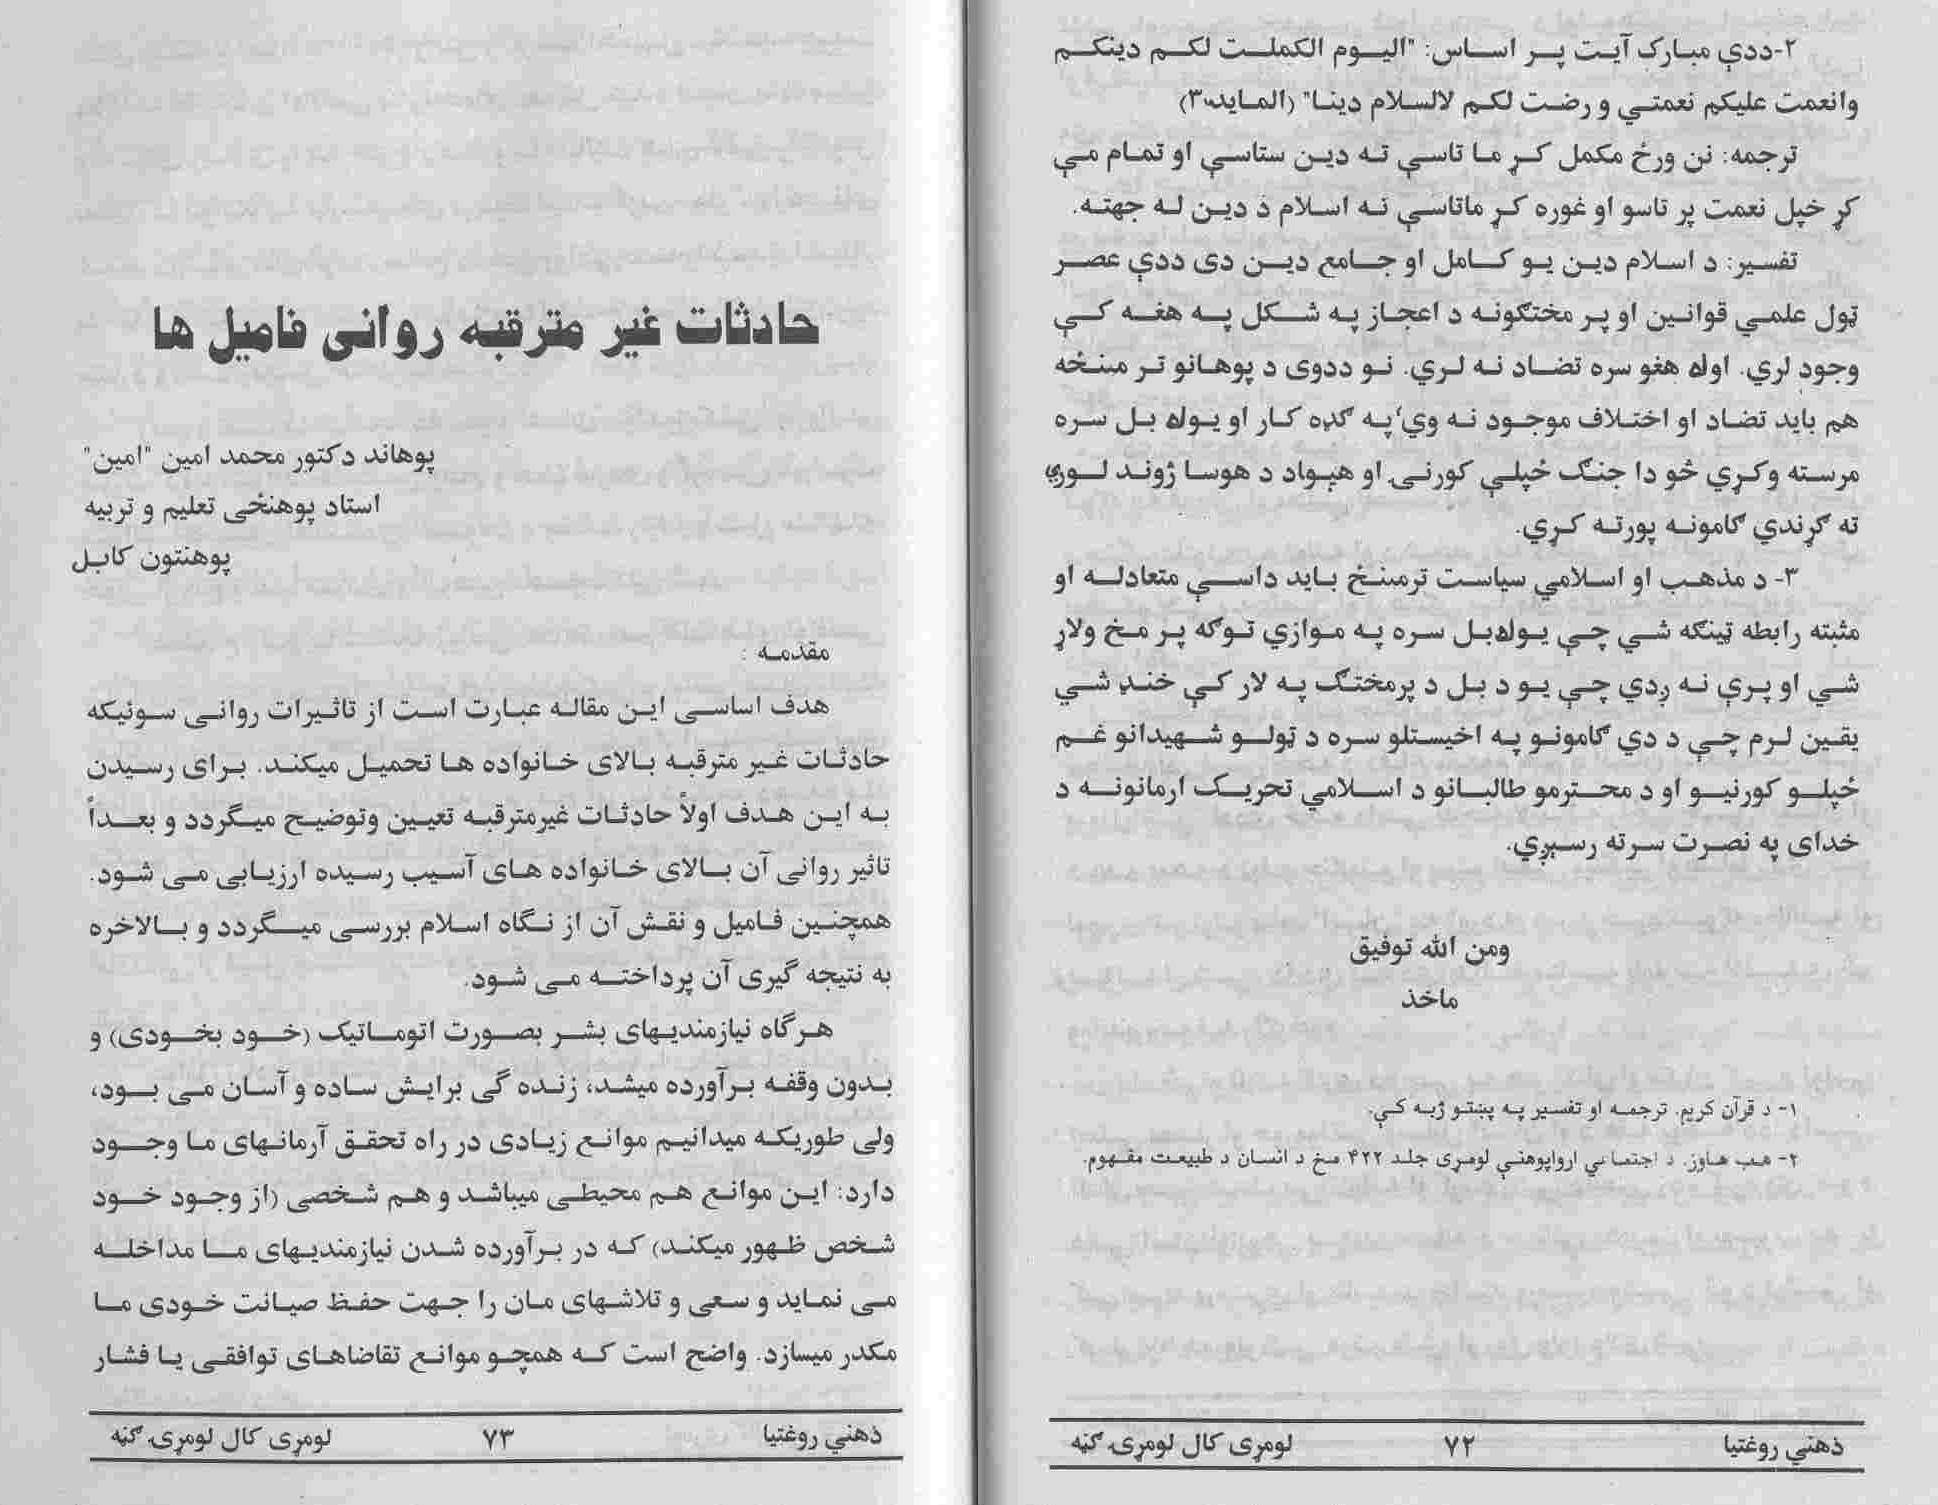 ۲-ددې مبارک آیت پر اساس: "الیوم الکملت لکم دینکم
وانعمت علیکم نعمتي و رضت لکم لالسلام دینا" (المایده۳)
ترجمه: نن ورځ مکمل کړ ما تاسې ته دین ستاسې او تمام مې
کړ خپل نعمت پر تاسو او غوره کړ ماتاسې ته اسلام د دین له جهته.
تفسیر: د اسلام دین یو کامل او جامع دین دی ددې عصر
ټول علمي قوانین او پر مختګونه د اعجاز په شکل په هغه کې
وجود لري. اوله هغو سره تضاد نه لري. نو ددوی د پوهانو تر مینځه
هم باید تضاد او اختلاف موجود نه وي٬په ګډه کار او یوله بل سره
مرسته وکړي څو دا جنګ ځپلې کورنۍ او هېواد د هوسا ژوند لورې
ته ګړندي ګامونه پورته کړي.
۳- د مذهب او اسلامي سیاست ترمینځ باید داسې متعادله او
مثبته رابطه ټینګه شي چې یوله‌بل سره په موازي توګه پر مخ ولاړ
شي او پرې نه ږدي چې یو د بل د پرمختګ په لار کې خنډ شي
یقین لرم چې د دي ګامونو په اخیستلو سره د ټولو شهیدانو غم
ځپلو کورنیو او د محترمو طالبانو د اسلامي تحریک ارمانونه د
خدای په نصرت سرته رسېږي.
ومن الله توفیق
ماخذ
۱- د قرآن کریم. ترجمه او تفسیر په پښتو ژبه کې.
۲- هب هاوز. د اجتماعي ارواپوهنې لومړی جلد ۴۲۲ مخ د انسان د طبیعت مفهوم.
ذهني روغتیا ۷۲ لومړی کال لومړۍ ګڼه
حادثات غیر مترقبه روانی فامیل ها
پوهاند دکتور محمد امین "امین"
استاد پوهنځی تعلیم و تربیه
پوهنتون کابل
مقدمه :
هدف اساسی این مقاله عبارت است از تاثیرات روانی سوئیکه
حادثات غیر مترقبه بالای خانواده ها تحمیل میکند. برای رسیدن
به این هدف اولاً حادثات غیرمترقبه تعیین وتوضیح میگردد و بعداً
تاثیر روانی آن بالای خانواده های آسیب رسیده ارزیابی می شود.
همچنین فامیل و نقش آن از نگاه اسلام بررسی میگردد و بالاخره
به نتیجه گیری آن پرداخته می شود.
هرگاه نیازمندیهای بشر بصورت اتوماتیک (خود بخودی) و
بدون وقفه برآورده میشد، زنده گی برایش ساده و آسان می بود،
ولی طوریکه میدانیم موانع زیادی در راه تحقق آرمانهای ما وجود
دارد: این موانع هم محیطی میباشد و هم شخصی (از وجود خود
شخص ظهور میکند) که در برآورده شدن نیازمندیهای ما مداخله
می نماید و سعی و تلاشهای مان را جهت حفظ صیانت خودی ما
مکدر میسازد. واضح است که همچو موانع تقاضاهای توافقی یا فشار
ذهني روغتیا ۷۳ لومړی کال لومړۍ ګڼه